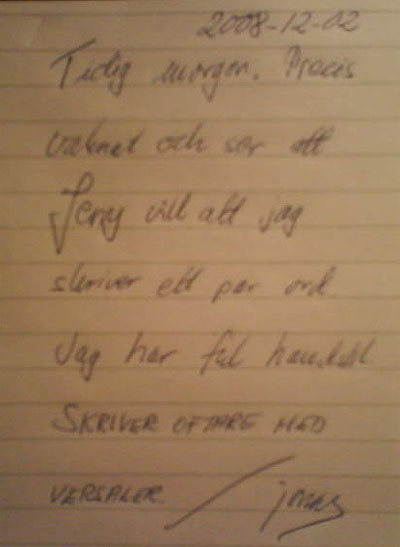 2008-12-02
Tidig morgon. Precis
vaknat och ser att
Jeny vill att jag
skriver ett par ord
Jag har ful handstil
SKRIVER OFTARE MED
VERSALER. / jonas